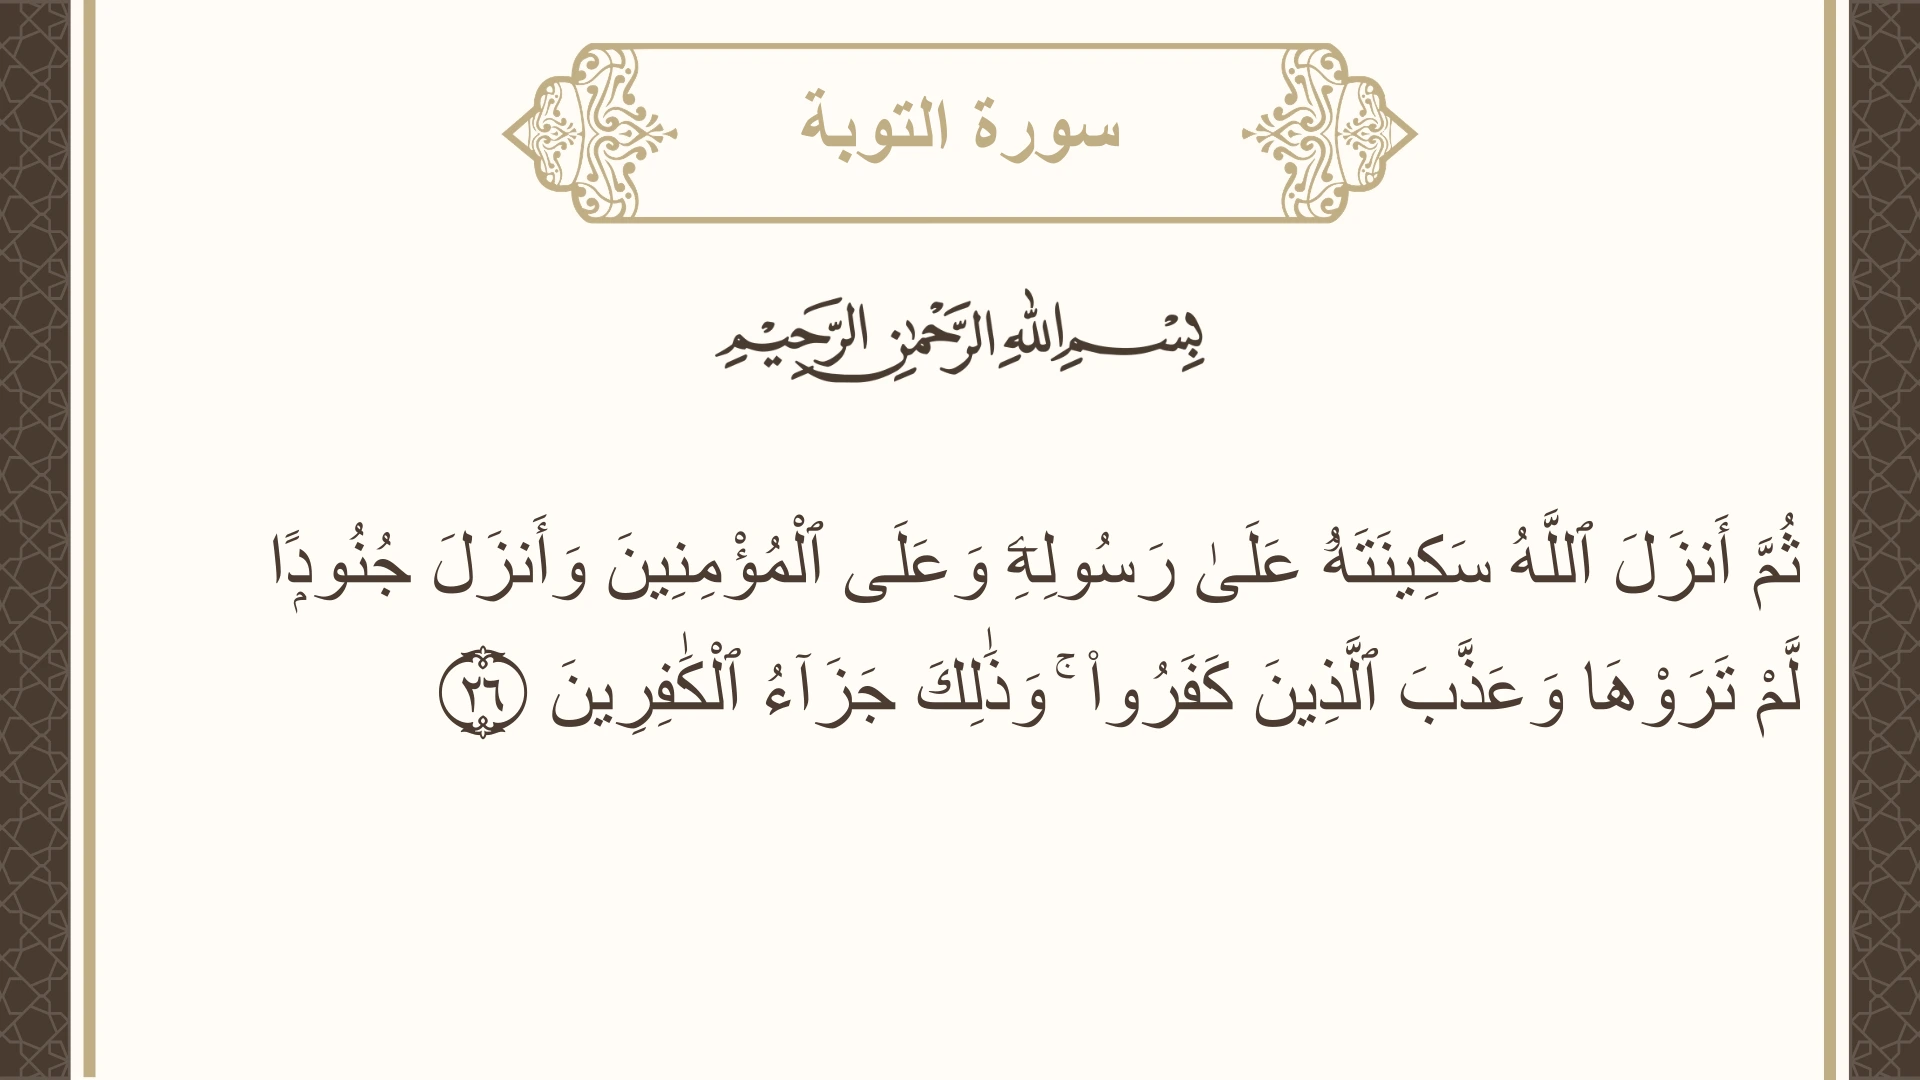 سورة التوبة
بِسْمِ اللهِ الرَّحْمٰنِ الرَّحِيْمِ
ثُمَّ أَنزَلَ ٱللَّهُ سَكِينَتَهُۥ عَلَىٰ رَسُولِهِۦ وَعَلَى ٱلْمُؤْمِنِينَ وَأَنزَلَ جُنُودًۭا
لَّمْ تَرَوْهَا وَعَذَّبَ ٱلَّذِينَ كَفَرُوا۟ ۚ وَذَٰلِكَ جَزَآءُ ٱلْكَٰفِرِينَ ٢٦